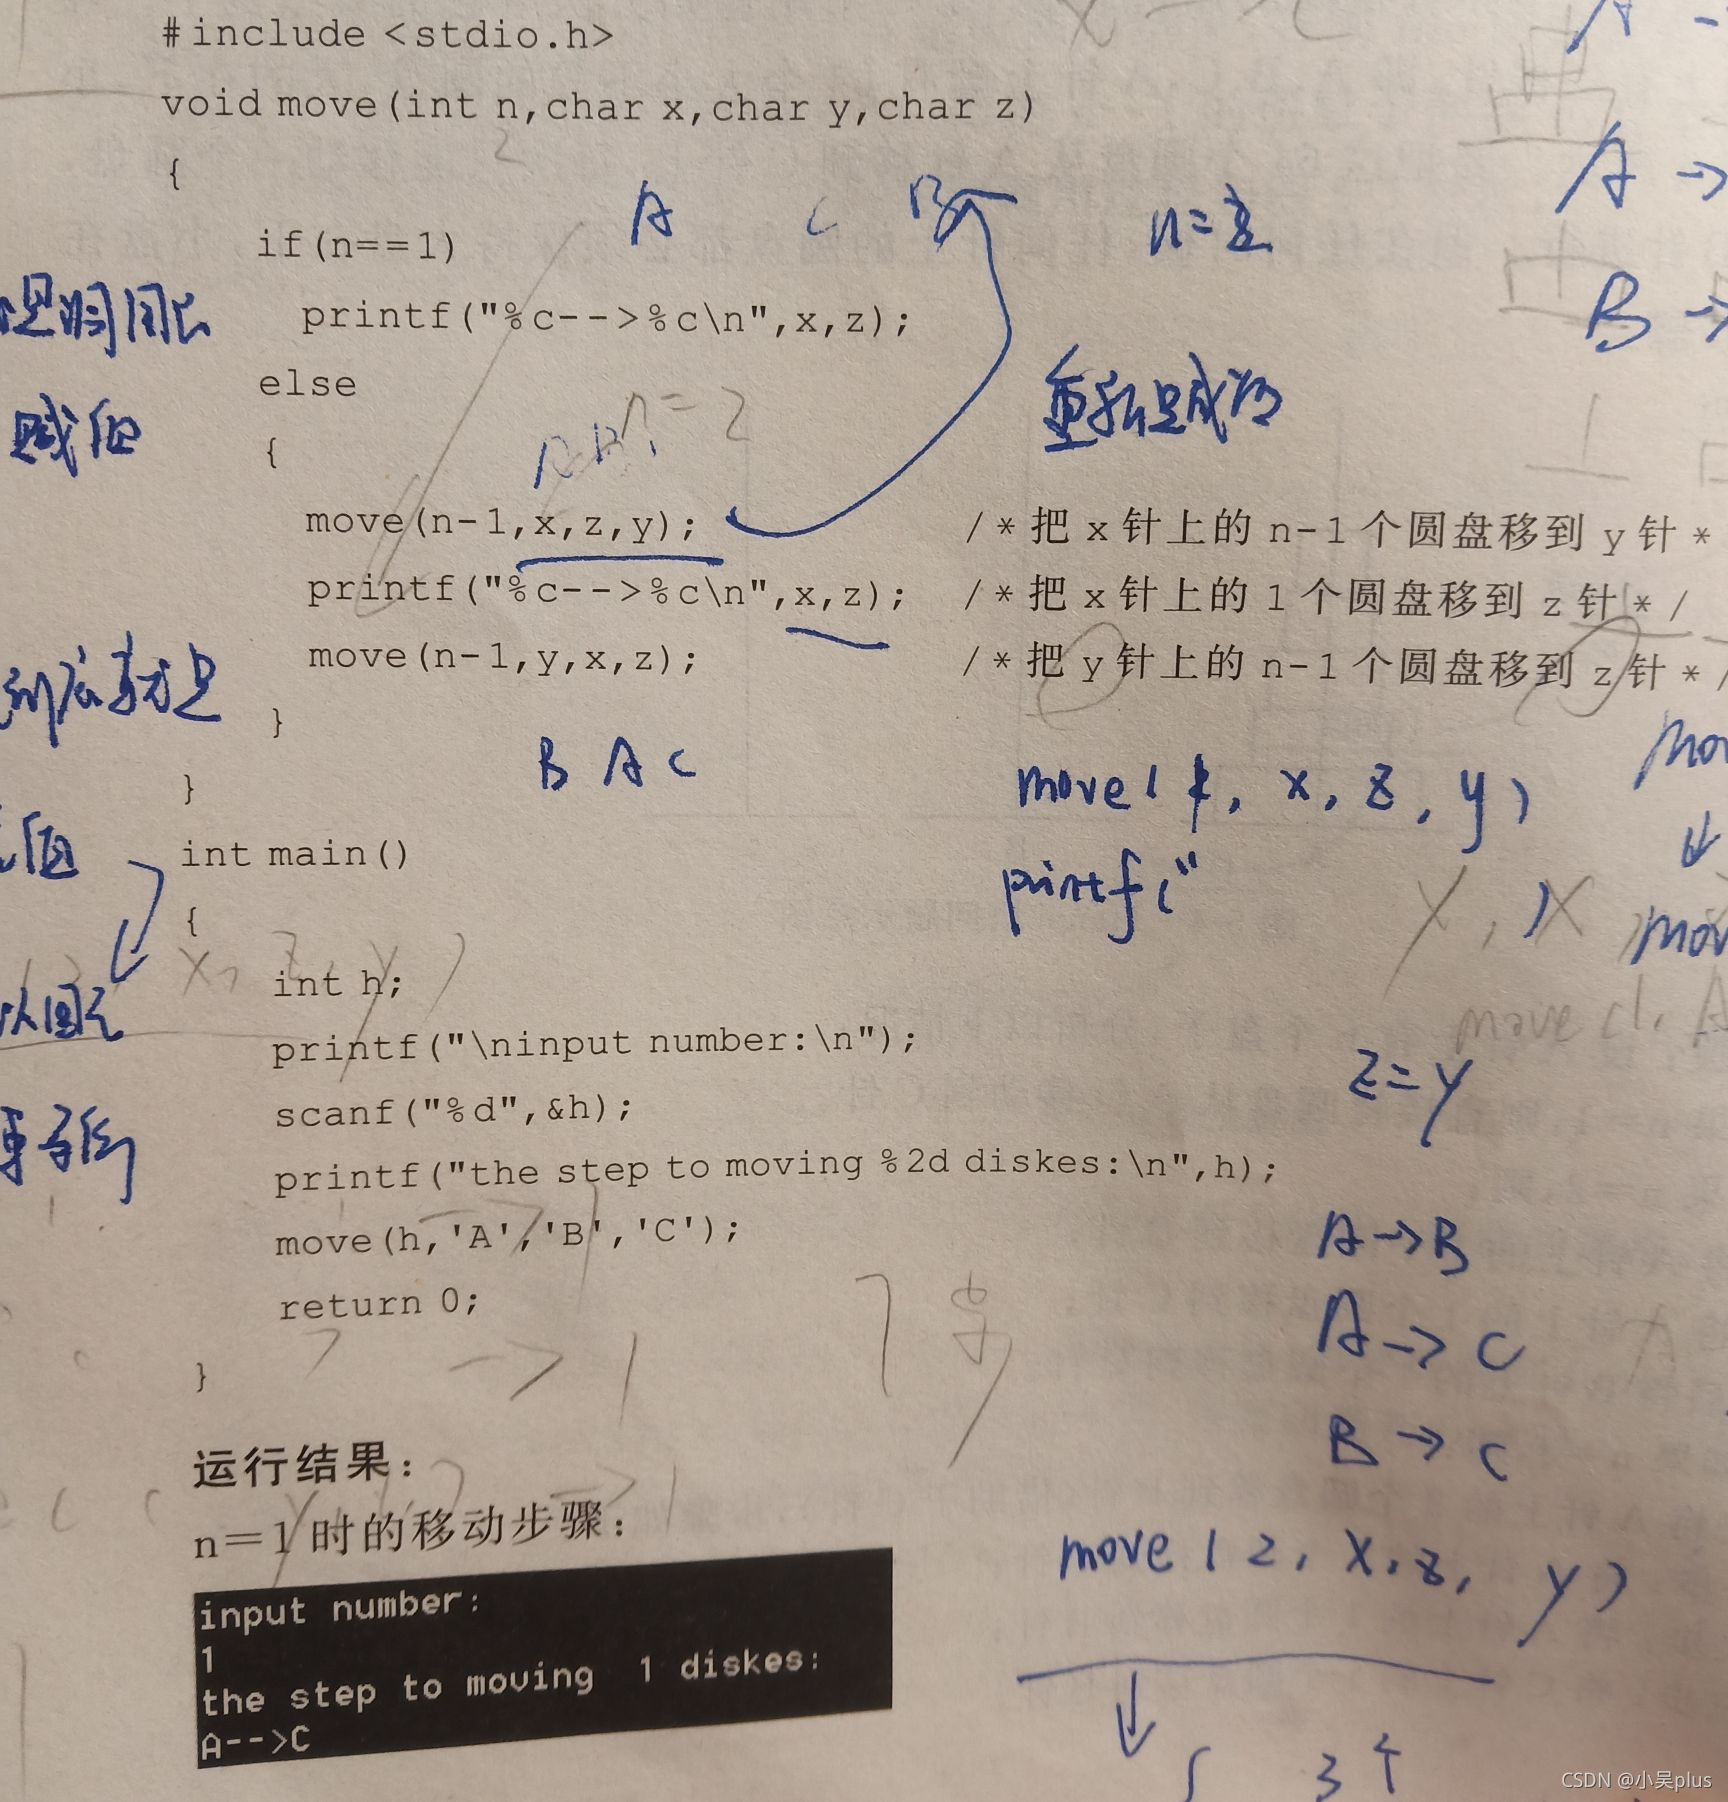 #include <stdio.h>
void move(int n,char x,char y,char z)
2
{
A C B
n=
if(n==1)
printf("%c-->%c\n",x,z);
else
赋值
n=2
重新赋值
{
A B
move(n-1,x,z,y); /*把 x 针上的 n-1 个圆盘移到 y 针*
printf("%c-->%c\n",x,z); /*把 x 针上的 1 个圆盘移到 z 针*/
move(n-1,y,x,z); /*把 y 针上的 n-1 个圆盘移到 z 针*/
到底就是
}
B A C
move( , x, z, y)
}
printf("
int main()
{
x, z, y)
int h;
printf("\ninput number:\n");
move(1, A
z=y
scanf("%d",&h);
printf("the step to moving %2d diskes:\n",h);
move(h,'A','B','C');
return 0;
}
A→
A→
B→
mov
↓
mov
A→B
A→C
B→C
运行结果:
n=1 时的移动步骤:
move(2, x, z, y)
↓
3个
input number:
1
the step to moving  1 diskes:
A-->C
CSDN @小吴plus